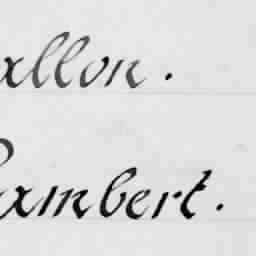 allon.
Lambert.